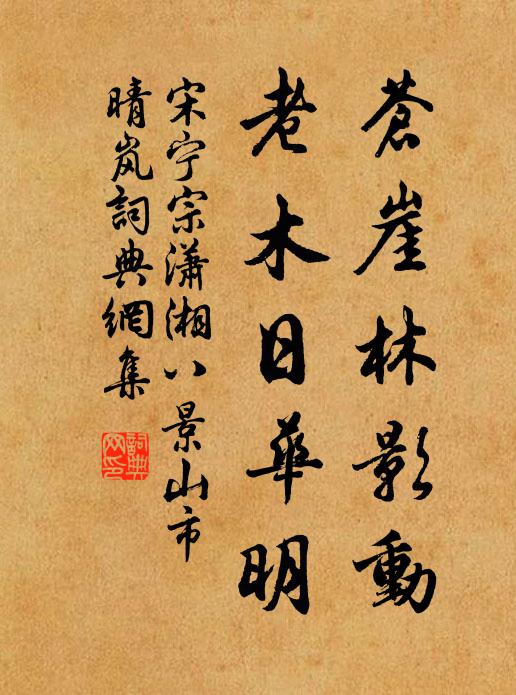 蒼崖林影動
老木日華明
宋宁宗瀟湘八景山市
晴岚詞典網集
詞典
网印